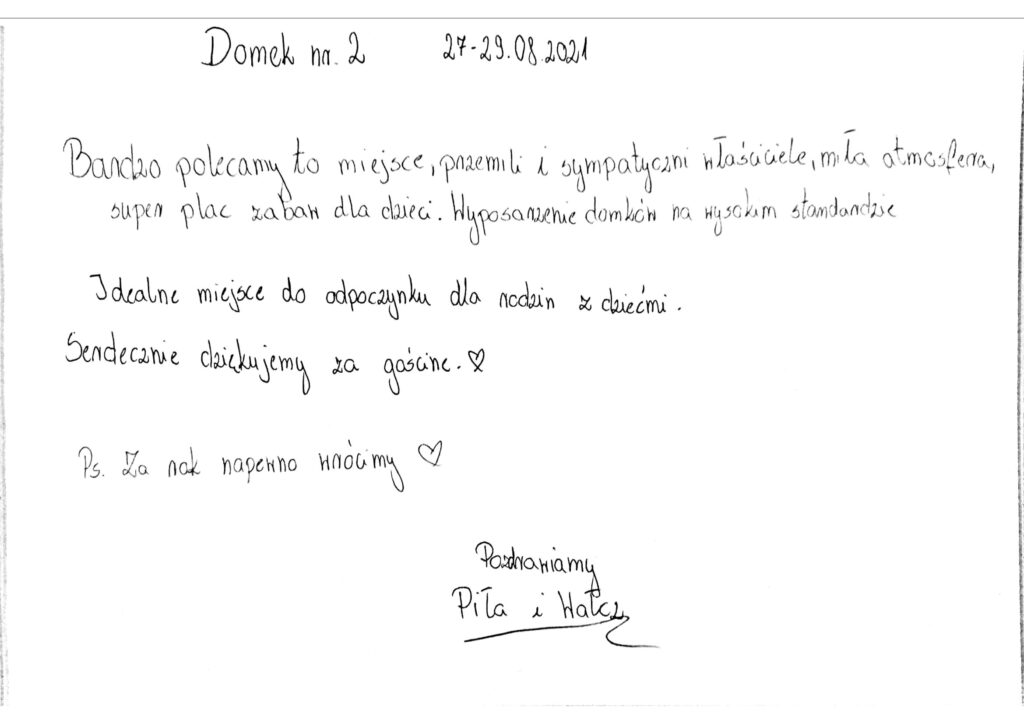 Domek nr. 2 27-29.08.2021
Bardzo polecamy to miejsce, przemili i sympatyczni właściciele, miła atmosfera,
super plac zabaw dla dzieci. Wyposarzenie domków na wysokim standardzie
Idealne miejsce do odpoczynku dla rodzin z dziećmi.
Serdecznie dziękujemy za gościnę. ♡
Ps. Za rok napewno wrócimy ♡
Pozdrawiamy
Piła i Wałcz